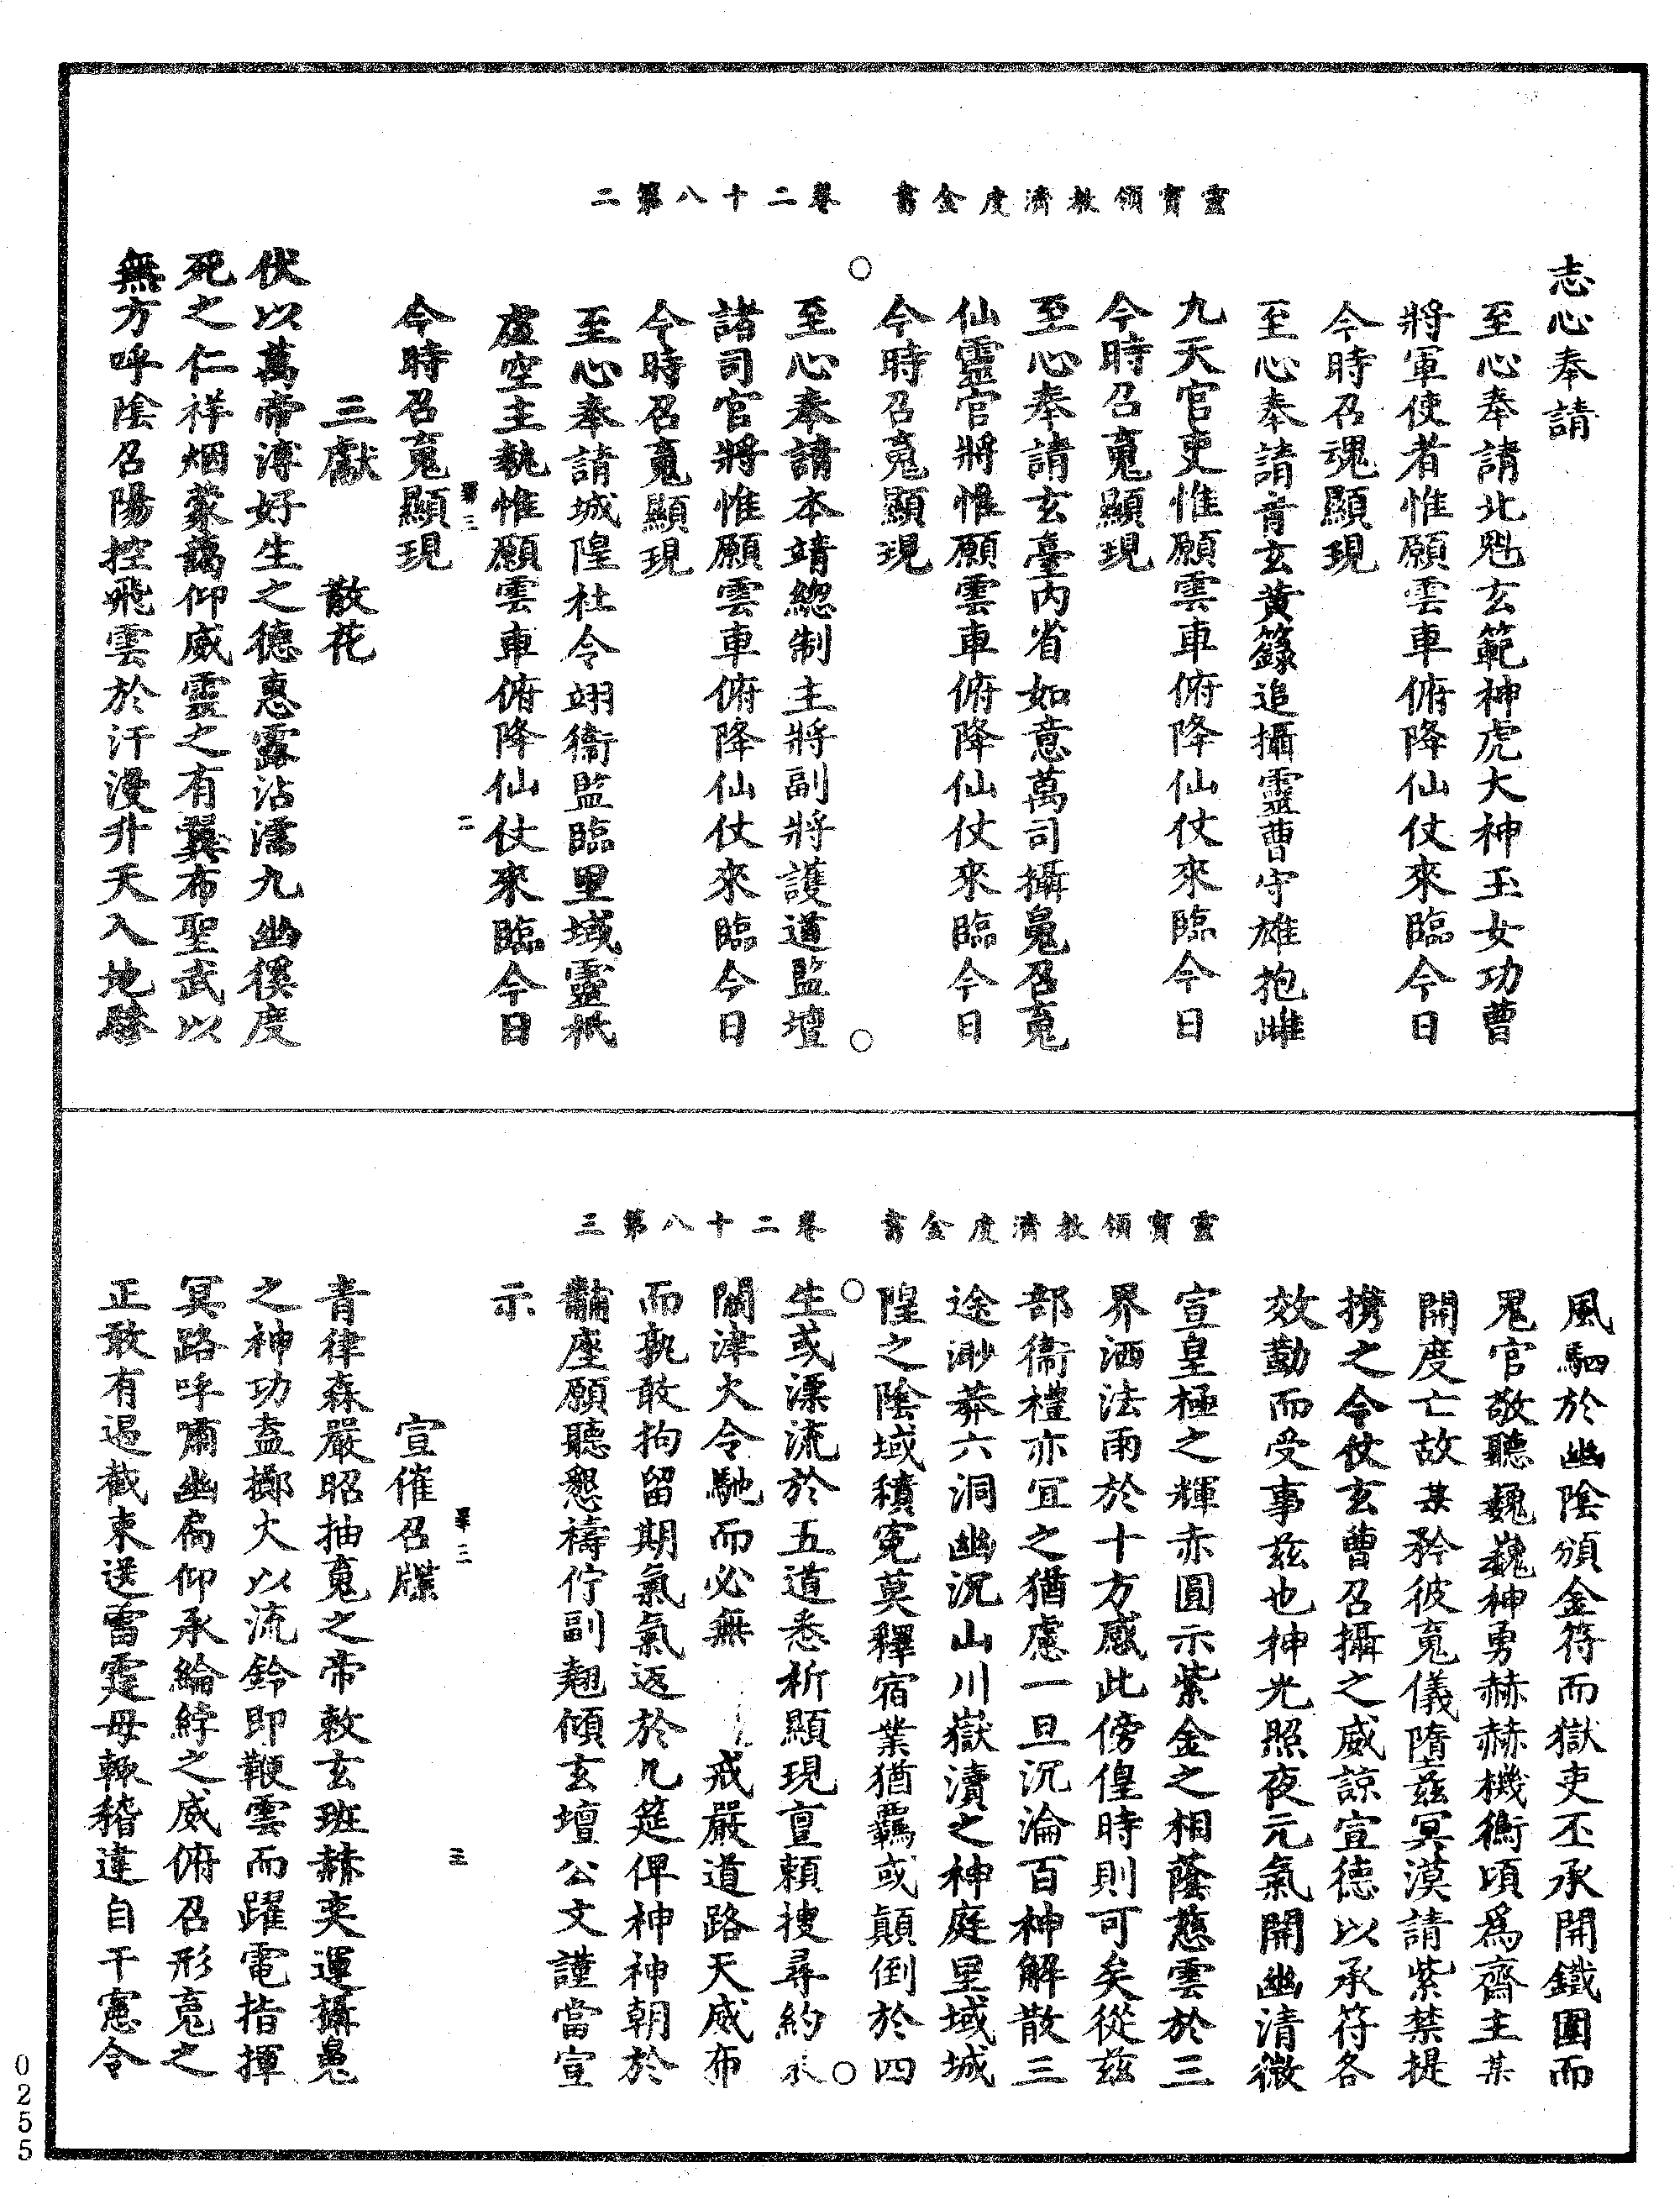 靈寶領教濟度金書　卷二十八第二
志心奉請
至心奉請北魁玄範神虎大神玉女功曹
將軍使者惟願雲車俯降仙仗來臨今日
今時召魂顯現
至心奉請青玄黃籙追攝靈曹守雄抱雌
九天官吏惟願雲車俯降仙仗來臨今日
今時召䰟顯現
至心奉請玄臺內省如意萬司攝䰟召䰟
仙靈官將惟願雲車俯降仙仗來臨今日
今時召䰟顯現
至心奉請本靖總制主將副將護道監壇
諸司官將惟願雲車俯降仙仗來臨今日
今時召䰟顯現
至心奉請城隍社令翊衞監臨里域靈祇
虛空主執惟願雲車俯降仙仗來臨今日
今時召䰟顯現
三獻　散花
伏以萬帝溥好生之德惠露沾濡九幽徯度
死之仁祥烟蒙藹仰威靈之有翼布聖武以
無方呼陰召陽控飛雲於汗漫升天入地
靈寶領教濟度金書　卷二十八第三
風駟於幽陰頒金符而獄吏丕承開鐵圍而
鬼官敬聽巍巍神勇赫赫機衡頃爲齋主某
開度亡故某矜彼䰟儀墮茲冥漠請紫禁提
攜之令仗玄曹召攝之威諒宣德以承符各
效勤而受事茲也神光照夜元氣開幽清微
宣皇極之輝赤圓示紫金之相蔭慈雲於三
界洒法雨於十方感此傍偟時則可矣從茲
部衞禮亦宜之猶慮一旦沉淪百神解散三
途渺莽六洞幽沉山川嶽瀆之神庭里域城
隍之陰域積寃莫釋宿業猶羈或顛倒於四
生或漂流於五道悉祈顯現亶賴搜尋約
關津火令馳而必無　戒嚴道路天威布
而孰敢拘留期氣氣返於几筵俾神神朝於
黼座願聽懇禱佇副翹傾玄壇公文謹當宣
示
宣催召牒
青律森嚴昭抽䰟之帝敕玄班赫奕運攝䰟
之神功盍擲火以流鈴即鞭雲而躍電指揮
冥路呼嘯幽扃仰承綸綍之威俯召形䰟之
正敢有遏截束送雷霆毋輒稽違自干憲令
0255